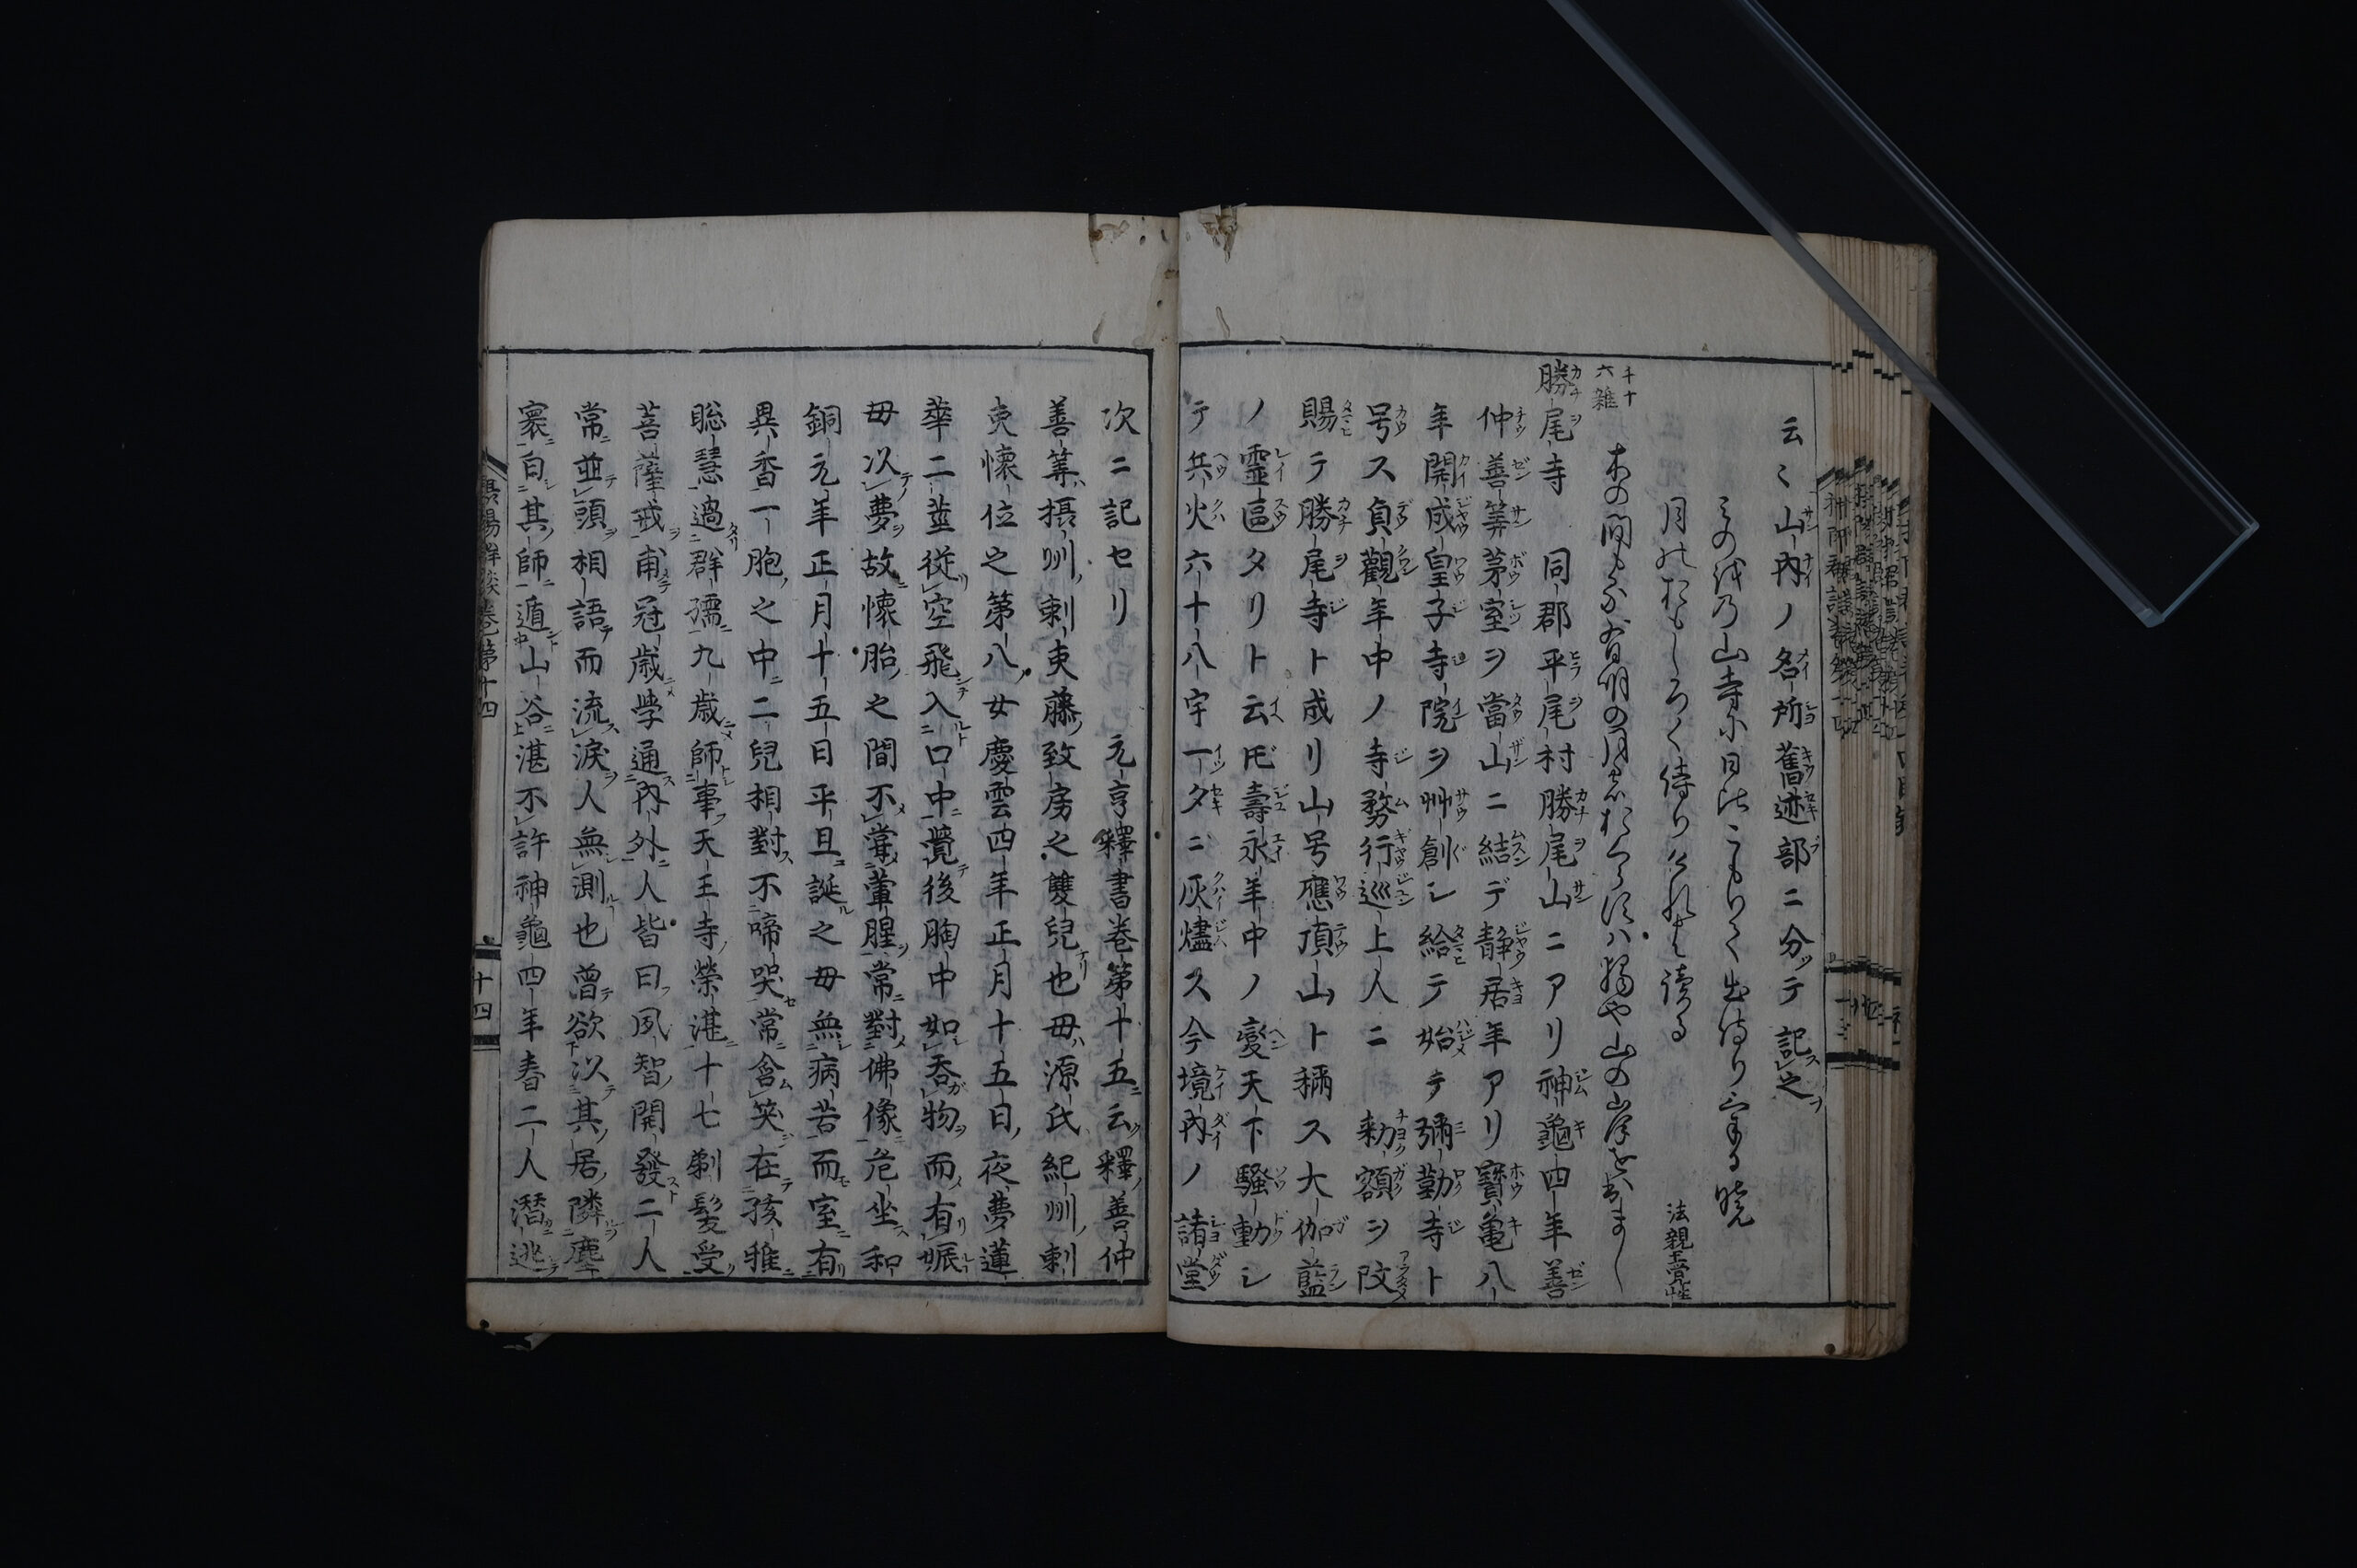 云〻山内ノ名所舊迹部ニ分テ記之
みのおの山寺に日比こもりて出侍りける暁
月のおもしろく侍りけれは読る
法親王寛性
千十六雑
木の間もる有明の月のおくらすは獨や山の峯を出まし
勝尾寺 同郡平尾村勝尾山ニアリ神龜四年善
仲善筭茅室ヲ當山ニ結デ静居年アリ寶亀八
年開成皇子寺院ヲ艸創シ給テ始テ彌勤寺ト
号ス貞觀年中ノ寺務行巡上人ニ 勅額ヲ改
賜テ勝尾寺ト成リ山号應頂山ト稱ス大伽藍
ノ靈區タリト云𪜈壽永年中ノ變天下騒動シ
テ兵火六十八宇一夕ニ灰燼ス今境内ノ諸堂
次ニ記セリ 元亨釋書巻第十五云釋善仲
善筭摂州刺吏藤致房之雙兒也母源氏紀州刺
吏懐位之第八女慶雲四年正月十五日夜夢蓮
華二莖從空飛入口中覺後胸中如呑物而有娠
母以夢故懐胎之間不甞葷腥常對佛像危坐和
銅元年正月十五日平旦誕之母無病苦而室有
異香一胞之中二兒相對不啼哭常含笑在孩稚
聡慧過群孺九歳師事天王寺榮湛十七剃髪受
菩薩戒甫冠歳學通内外人皆曰夙智開發二人
常並頭相語而流涙人無測也曽欲以其居隣塵
寰白其師遁山谷湛不許神龜四年春二人潜逃
摂陽群談巻第十四
十四